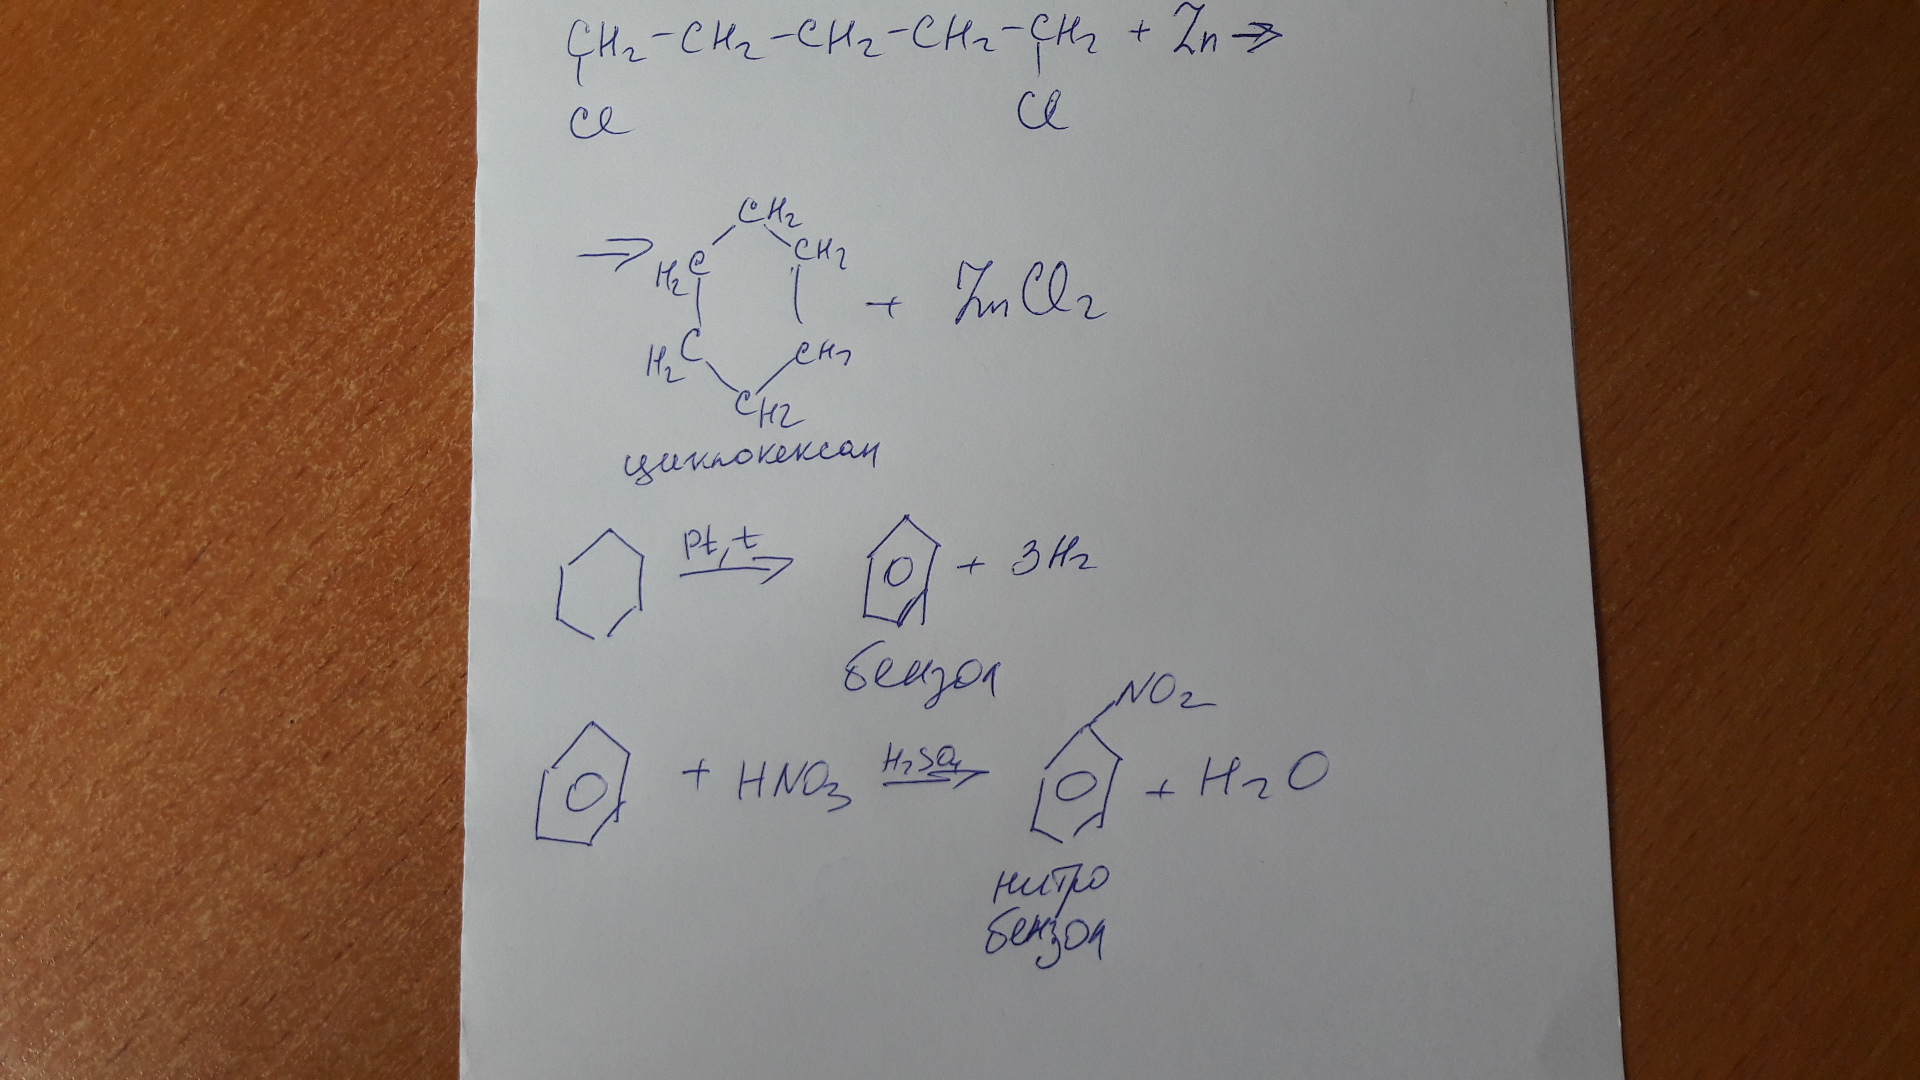 CH2-CH2-CH2-CH2-CH2 + Zn ⇒
Cl Cl
⇒ CH2
H2C CH2
+ ZnCl2
H2C CH2
CH2
циклокексан
Pt, t
+ 3H2
бензол
NO2
+ HNO3 H2SO4 + H2O
нитро
бензол